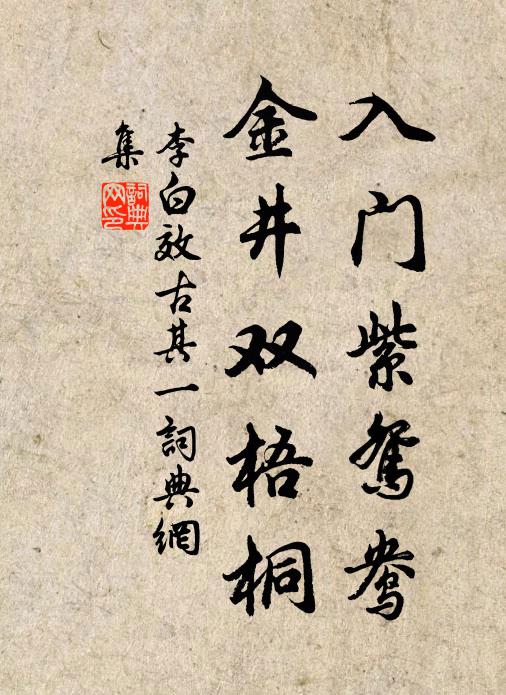 入门紫鸳鸯
金井双梧桐
李白效古其一詞典網
集
詞典
网印